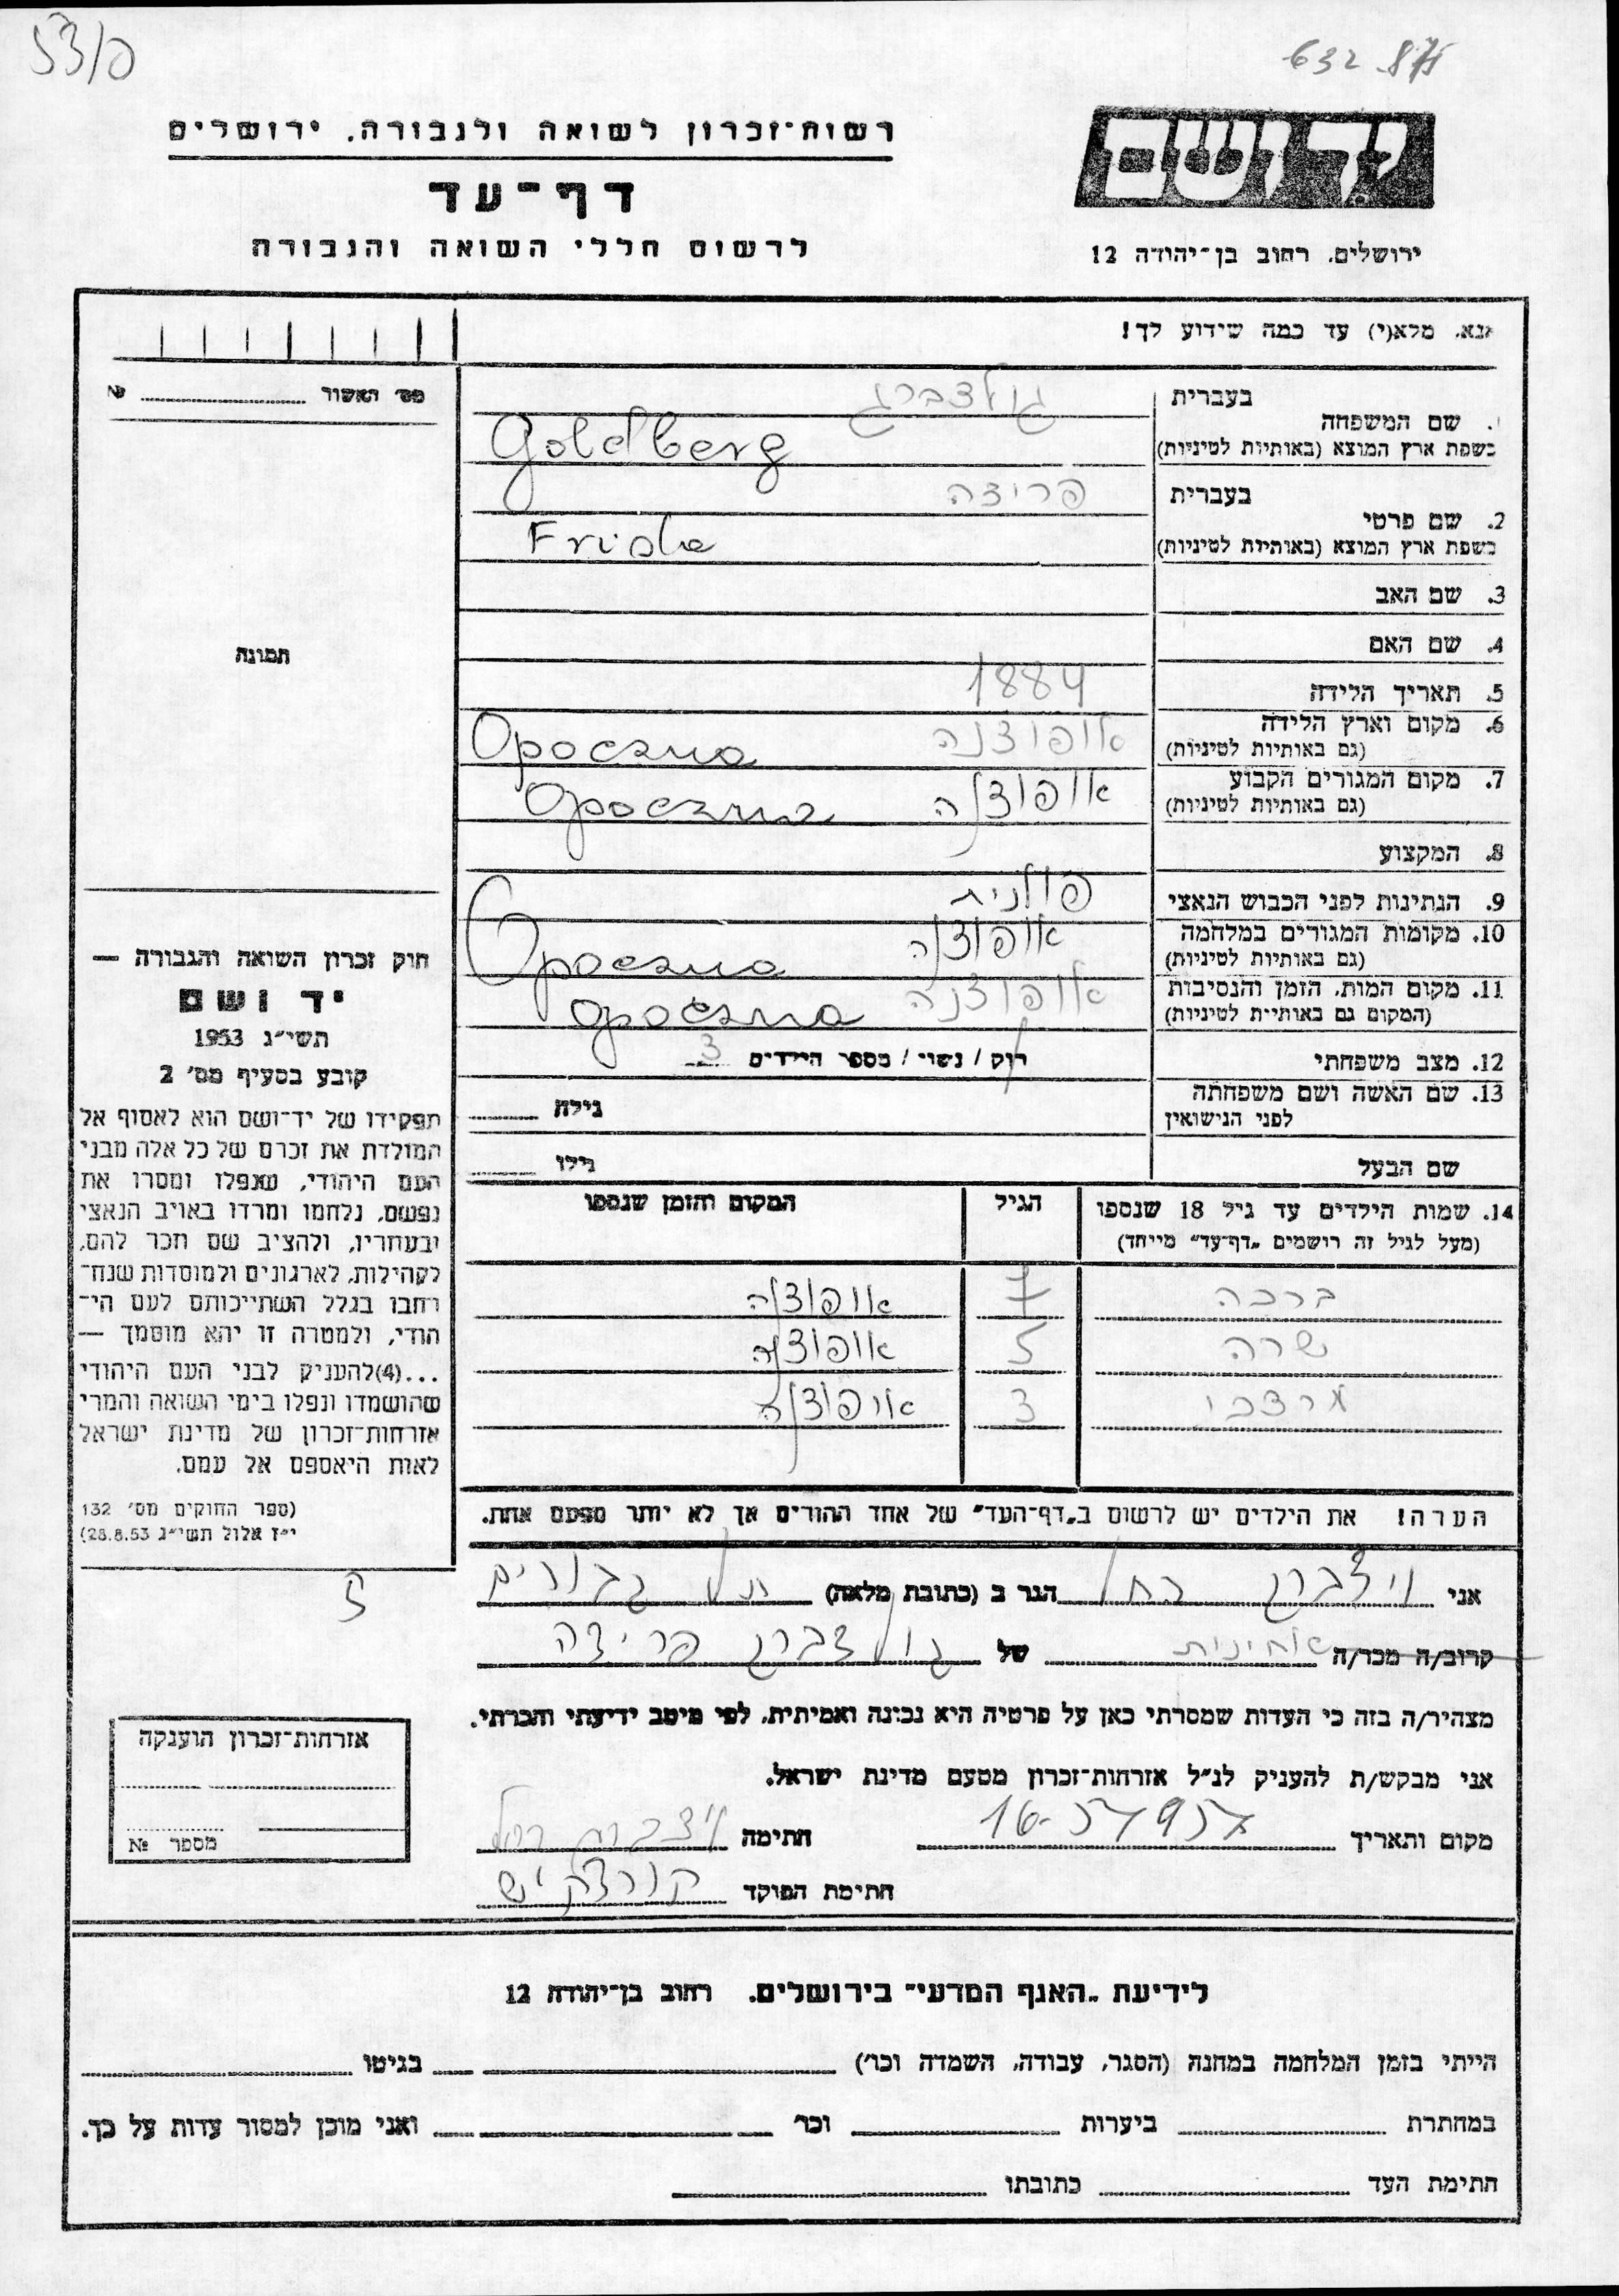 53/פ
632 875
רשות־זכרון לשואה ולגבורה, ירושלים
יד ושם
דף־עד
לרשום חללי השואה והגבורה
ירושלים, רחוב בן־יהודה 12
אנא, מלא(י) עד כמה שידוע לך!
מס׳ האשור № 
בעברית גולדברג
1. שם המשפחה
בשפת ארץ המוצא (באותיות לטיניות) Goldberg
בעברית פרידה
2. שם פרטי
בשפת ארץ המוצא (באותיות לטיניות) Frida
3. שם האב
4. שם האם
תמונה
5. תאריך הלידה 1884
6. מקום וארץ הלידה אופוצנה Opoczna
(גם באותיות לטיניות)
7. מקום המגורים הקבוע אופוצנה Opoczna
(גם באותיות לטיניות)
8. המקצוע
9. הנתינות לפני הכבוש הנאצי פולנית
10. מקומות המגורים במלחמה אופוצנה Opoczna
(גם באותיות לטיניות)
11. מקום המות, הזמן והנסיבות אופוצנה Opoczna
(המקום גם באותיות לטיניות)
12. מצב משפחתי רוק / נשוי / מספר הילדים 3
13. שם האשה ושם משפחתה גילה
לפני הנישואין
שם הבעל גילו
14. שמות הילדים עד גיל 18 שנספו הגיל המקום והזמן שנספו
(מעל לגיל זה רושמים „דף־עד” מיוחד)
ברכה 7 אופוצנה
שרה 5 אופוצנה
מרדכי 3 אופוצנה
הערה! את הילדים יש לרשום ב„דף־העד” של אחד ההורים אך לא יותר מפעם אחת.
חוק זכרון השואה והגבורה —
יד ושם
תשי״ג 1953
קובע בסעיף מס׳ 2
תפקידו של יד־ושם הוא לאסוף אל
המולדת את זכרם של כל אלה מבני
העם היהודי, שנפלו ומסרו את
נפשם, נלחמו ומרדו באויב הנאצי
ובעוזריו, ולהציב שם וזכר להם,
לקהילות, לארגונים ולמוסדות שנח־
רבו בגלל השתייכותם לעם הי־
הודי, ולמטרה זו יהא מוסמך —
...(4)להעניק לבני העם היהודי
שהושמדו ונפלו בימי השואה והמרי
אזרחות־זכרון של מדינת ישראל
לאות היאספם אל עמם.
(ספר החוקים מס׳ 132
י״ז אלול תשי״ג 28.8.53)
אני ויצברג רחל הגר ב (כתובת מלאה) תל גבורים
קרוב/ה מכר/ה של גולדברג פרידה
מצהיר/ה בזה כי העדות שמסרתי כאן על פרטיה היא נכונה ואמיתית, לפי מיטב ידיעתי והכרתי.
אני מבקש/ת להעניק לנ״ל אזרחות־זכרון מטעם מדינת ישראל.
מקום ותאריך חתימה ויצברג רחל
חתימת הפוקד
אזרחות־זכרון הוענקה
מספר №
לידיעת „האגף המדעי” בירושלים, רחוב בן־יהודה 12
הייתי בזמן המלחמה במחנה (הסגר, עבודה, השמדה וכו׳) בגיטו
במחתרת ביערות וכו׳ ואני מוכן למסור עדות על כך.
חתימת העד כתובתו